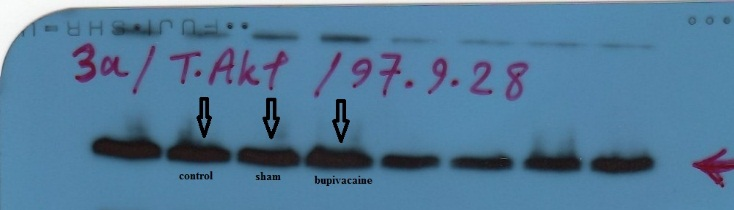 FUJI • SHR-U
3a/ T.Akt /97.9.28
control sham bupivacaine